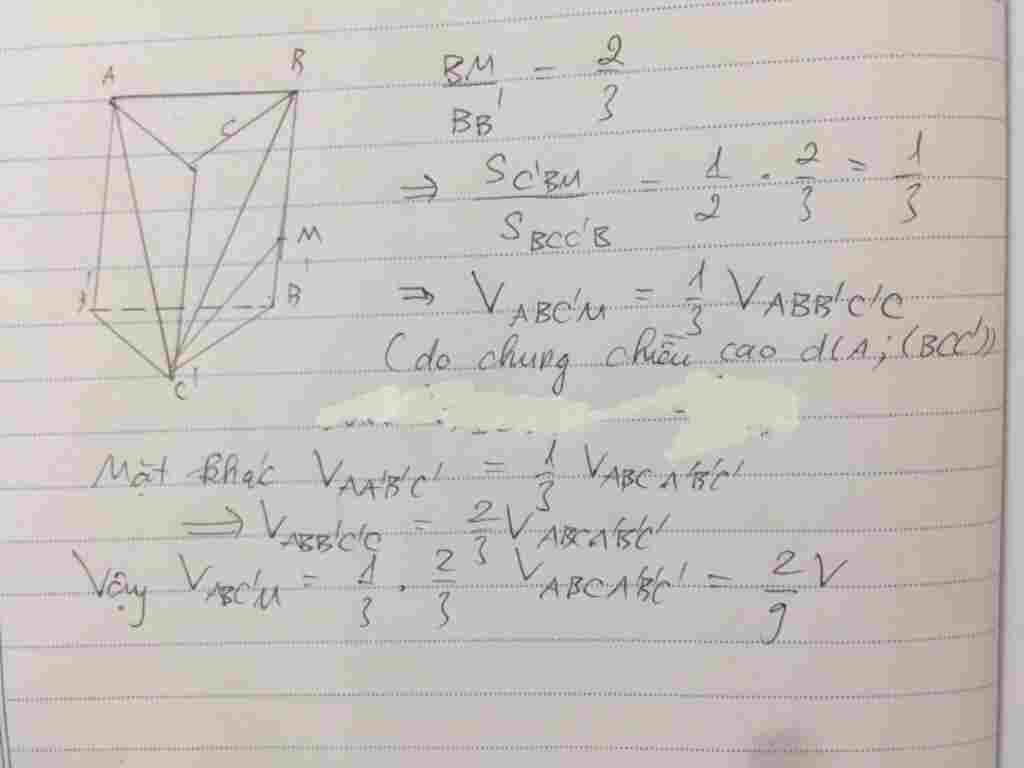 A B
C
M
A' B'
C'
BM/BB' = 2/3
⇒ S_C'BM / S_BCC'B = 1/2 . 2/3 = 1/3
⇒ V_ABC'M = 1/3 V_ABB'C'C
(do chung chiều cao d(A; (BCC'))
Mặt khác V_AA'B'C' = 1/3 V_ABCA'B'C'
⇒ V_ABB'C'C = 2/3 V_ABCA'B'C'
Vậy V_ABC'M = 1/3 . 2/3 V_ABCA'B'C' = 2/9 V